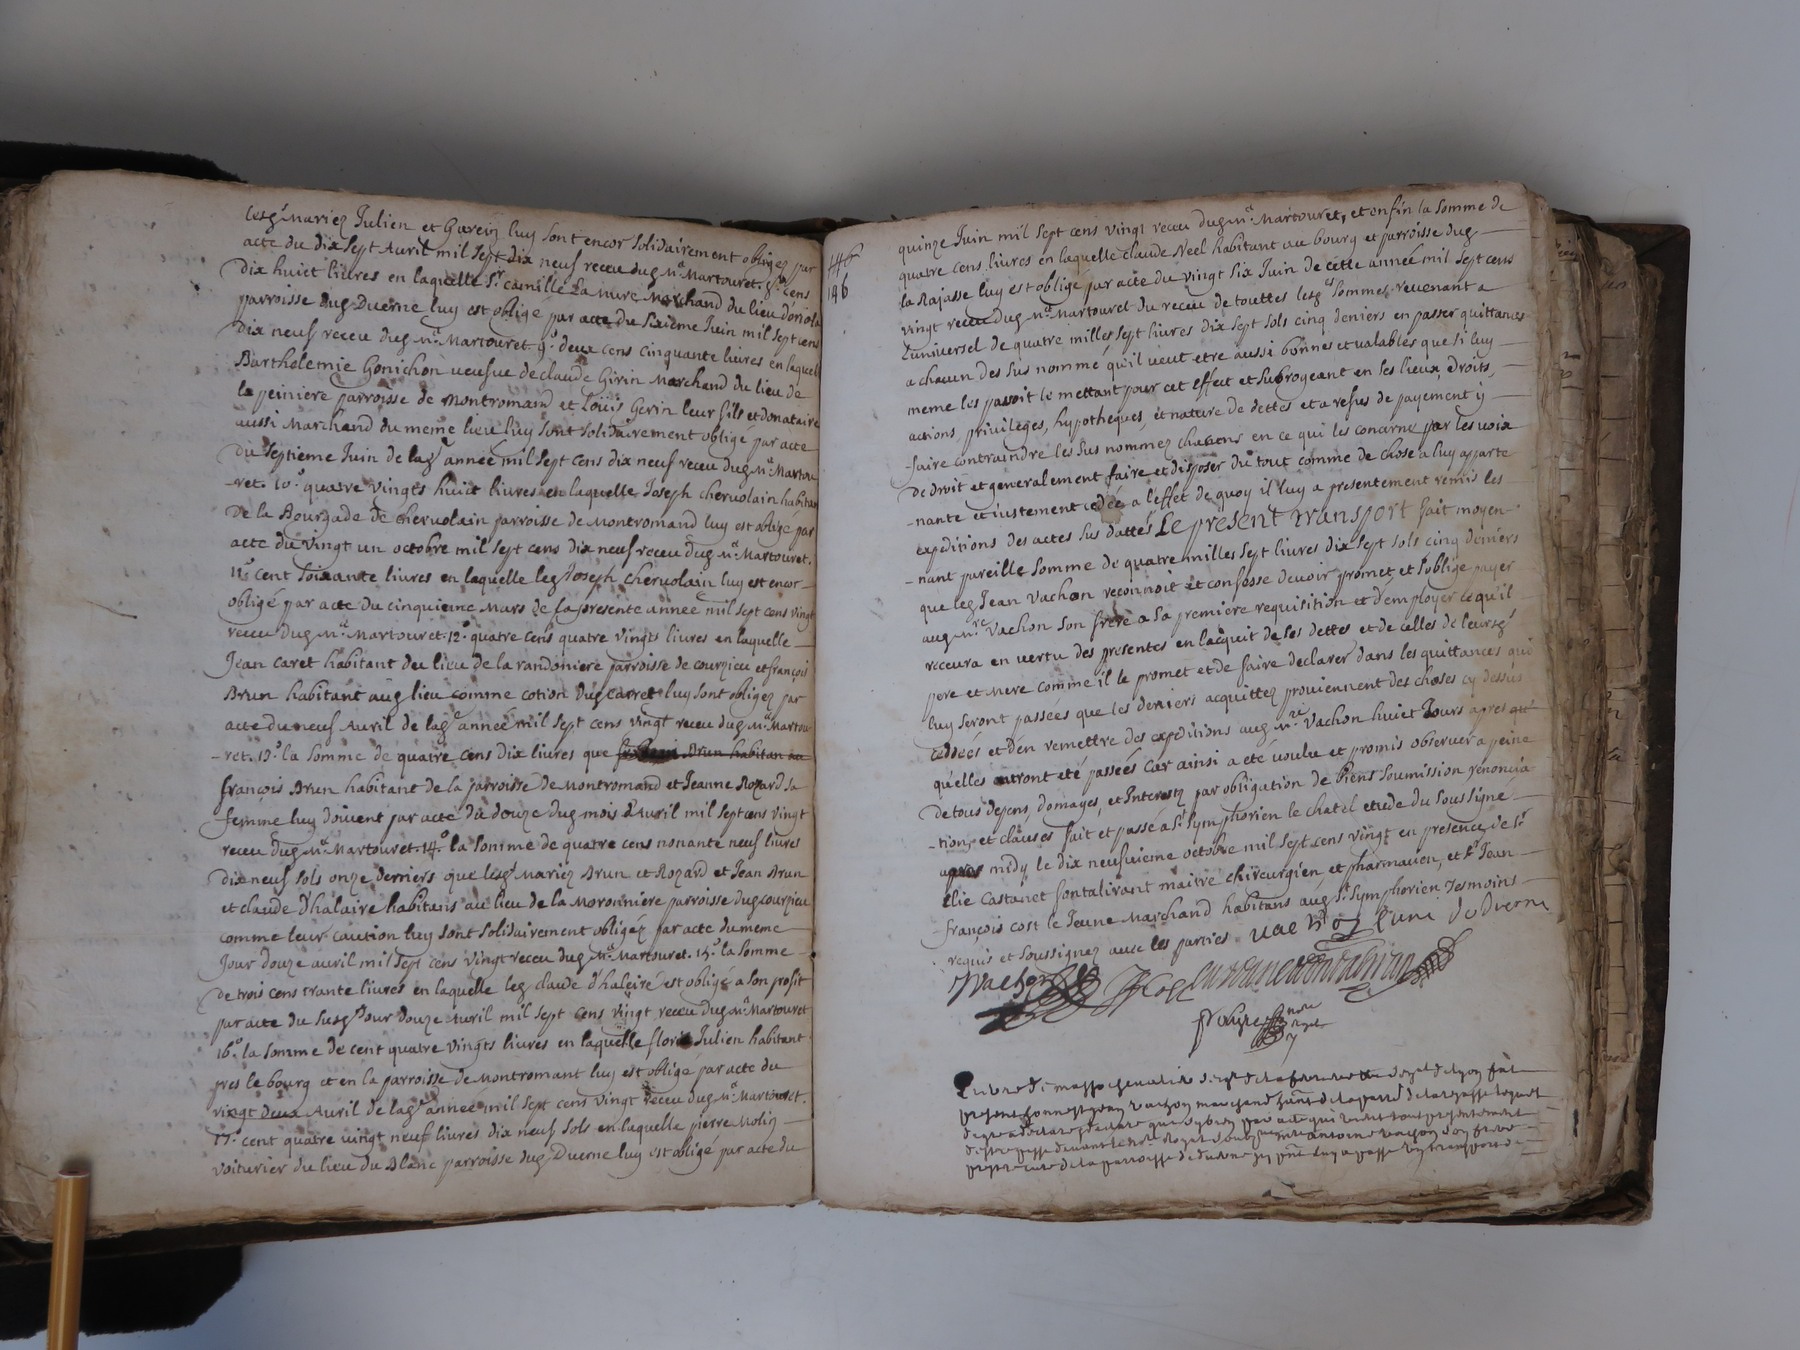 lesd.ᵗ Mariez Julien et Guerin luy sont encor solidairement obligez par
acte du dix sept Avril mil sept dix neuf receu dud. mᵉ. Martouret. 8.º cens
dix huict livres en laquelle Sʳ. Camille La Mure Marchand du lieu
parroisse dud. Duerne luy est obligé par acte du sixieme Juin mil sept cens
dix neuf receu dud. mᵉ. Martouret. 9.º deux cens cinquante livres en laquelle
Bartholemie Gonichon veufve de Claude Girin Marchand du lieu de
la peiniere parroisse de Montromand et Loüis Gerin leur fils et donataire
aussi Marchand du meme lieu luy sont solidairement obligé par acte
du septieme Juin de lad. année mil sept cens dix neuf receu dud. mᵉ. Martou
-ret. 10.º quatre vingts huict livres en laquelle Joseph Chervolain habitant
de la Bourgade de Chervolain parroisse de Montromand luy est obligé par
acte du vingt un octobre mil sept cens dix neuf receu dud. mᵉ. Martouret.
11.º cent soixante livres en laquelle led. Joseph Chervolain luy est encor
obligé par acte du cinquieme Mars de la presente année mil sept cens vingt
receu dud. mᵉ. Martouret. 12.º quatre cens quatre vingts livres en laquelle
Jean Caret habitant du lieu de la randoniere parroisse de courzieu et françois
Brun habitant aud. lieu comme cotion dud. Carret luy sont obligez par
acte du neuf Avril de lad. année mil sept cens vingt receu dud. mᵉ. Martou
-ret. 13.º la somme de quatre cens dix livres que Brun habitan au
françois Brun habitant de la parroisse de Montromand et Jeanne Rozard sa
femme luy doivent par acte du douze dud. mois d'Avril mil sept cens vingt
receu dud. mᵉ. Martouret. 14.º la somme de quatre cens nonante neuf livres
dix neuf sols onze deniers que lesd. Mariez Brun et Rozard et Jean Brun
et claude Dhalaire habitans au lieu de la Moronniere parroisse dud. courzieu
comme leur caution luy sont solidairement obligez par acte du meme
Jour douze avril mil sept cens vingt receu dud. mᵉ. Martouret. 15.º la somme
de trois cens trante livres en laquelle led. claude Dhaleire est obligé a son profit
par acte du susd. Jour douze avril mil sept cens vingt receu dud. mᵉ. Martouret
16.º la somme de cent quatre vingts livres en laquelle Julien habitant
pres le bourg et en la parroisse de Montromant luy est obligé par acte du
vingt deux Avril de lad. année mil sept cens vingt receu dud. mᵉ. Martouret.
17.º cent quatre vingt neuf livres dix neuf sols en laquelle pierre Molin
voiturier du lieu du Blanc parroisse dud. Duerne luy est obligé par acte du
146
146
quinze Juin mil sept cens vingt receu dud. mᵉ. Martouret, et enfin la somme de
quatre cens livres en laquelle claude Neel habitant au bourg et parroisse dud.
la Rajasse luy est obligé par acte du vingt six Juin de cette année mil sept cens
vingt receu dud. mᵉ. Martouret du receu de touttes lesd. sommes revenant a
L'universel de quatre milles sept livres dix sept sols cinq deniers en passer quittances
a chacun des sus nommé qu'il veut etre aussi bonnes et valables que si luy
meme les passoit le mettant pour cet effect et subrogeant en ses lieux, Droits,
actions, privileges, hypotheques, et nature de dettes et a refus de payement y
faire contraindre les sus nommez chacuns en ce qui les concerne par les voix
De droit et generalement faire et disposer du tout comme de chose a luy apparte
-nante et justement cedée a l'effet de quoy il luy a presentement remis les
expeditions des actes sus dattés Le present transport fait moyen
-nant pareille somme de quatre milles sept livres dix sept sols cinq deniers
que led. Jean Vachon reconnoit et confesse devoir promet et s'oblige payer
aud. mʳᵉ Vachon son frere a sa premiere requisition et d'employer ce qu'il
recevra en vertu des presentes en l'acquit de ses dettes et de celles de leursd.
pere et mere comme il le promet et de faire declarer dans les quittances qui
luy seront passées que les deniers acquittez proviennent des choses cy dessus
ceddeés et d'en remettre des expeditions aud. mʳᵉ Vachon huict Jours apres qu'
qu'elles auront eté passeés Car ainsi a eté voulu et promis observer a peine
De tous depens, domages, et Interestz par obligation de biens soumission renoncia
-tions et clauses fait et passé a Sᵗ Symphorien le chatel etude du soussigné
apres midy le dix neufvieme octobre mil sept cens vingt en presence de Sʳ
Elie Castanet fontalirant maitre chirurgien et pharmacien, et Sʳ Jean
françois cost le Jeune Marchand habitans aud. Sᵗ Symphorien Tesmoins
requis et soussignez avec les parties. Vachon Curé de Duerne
JVachon